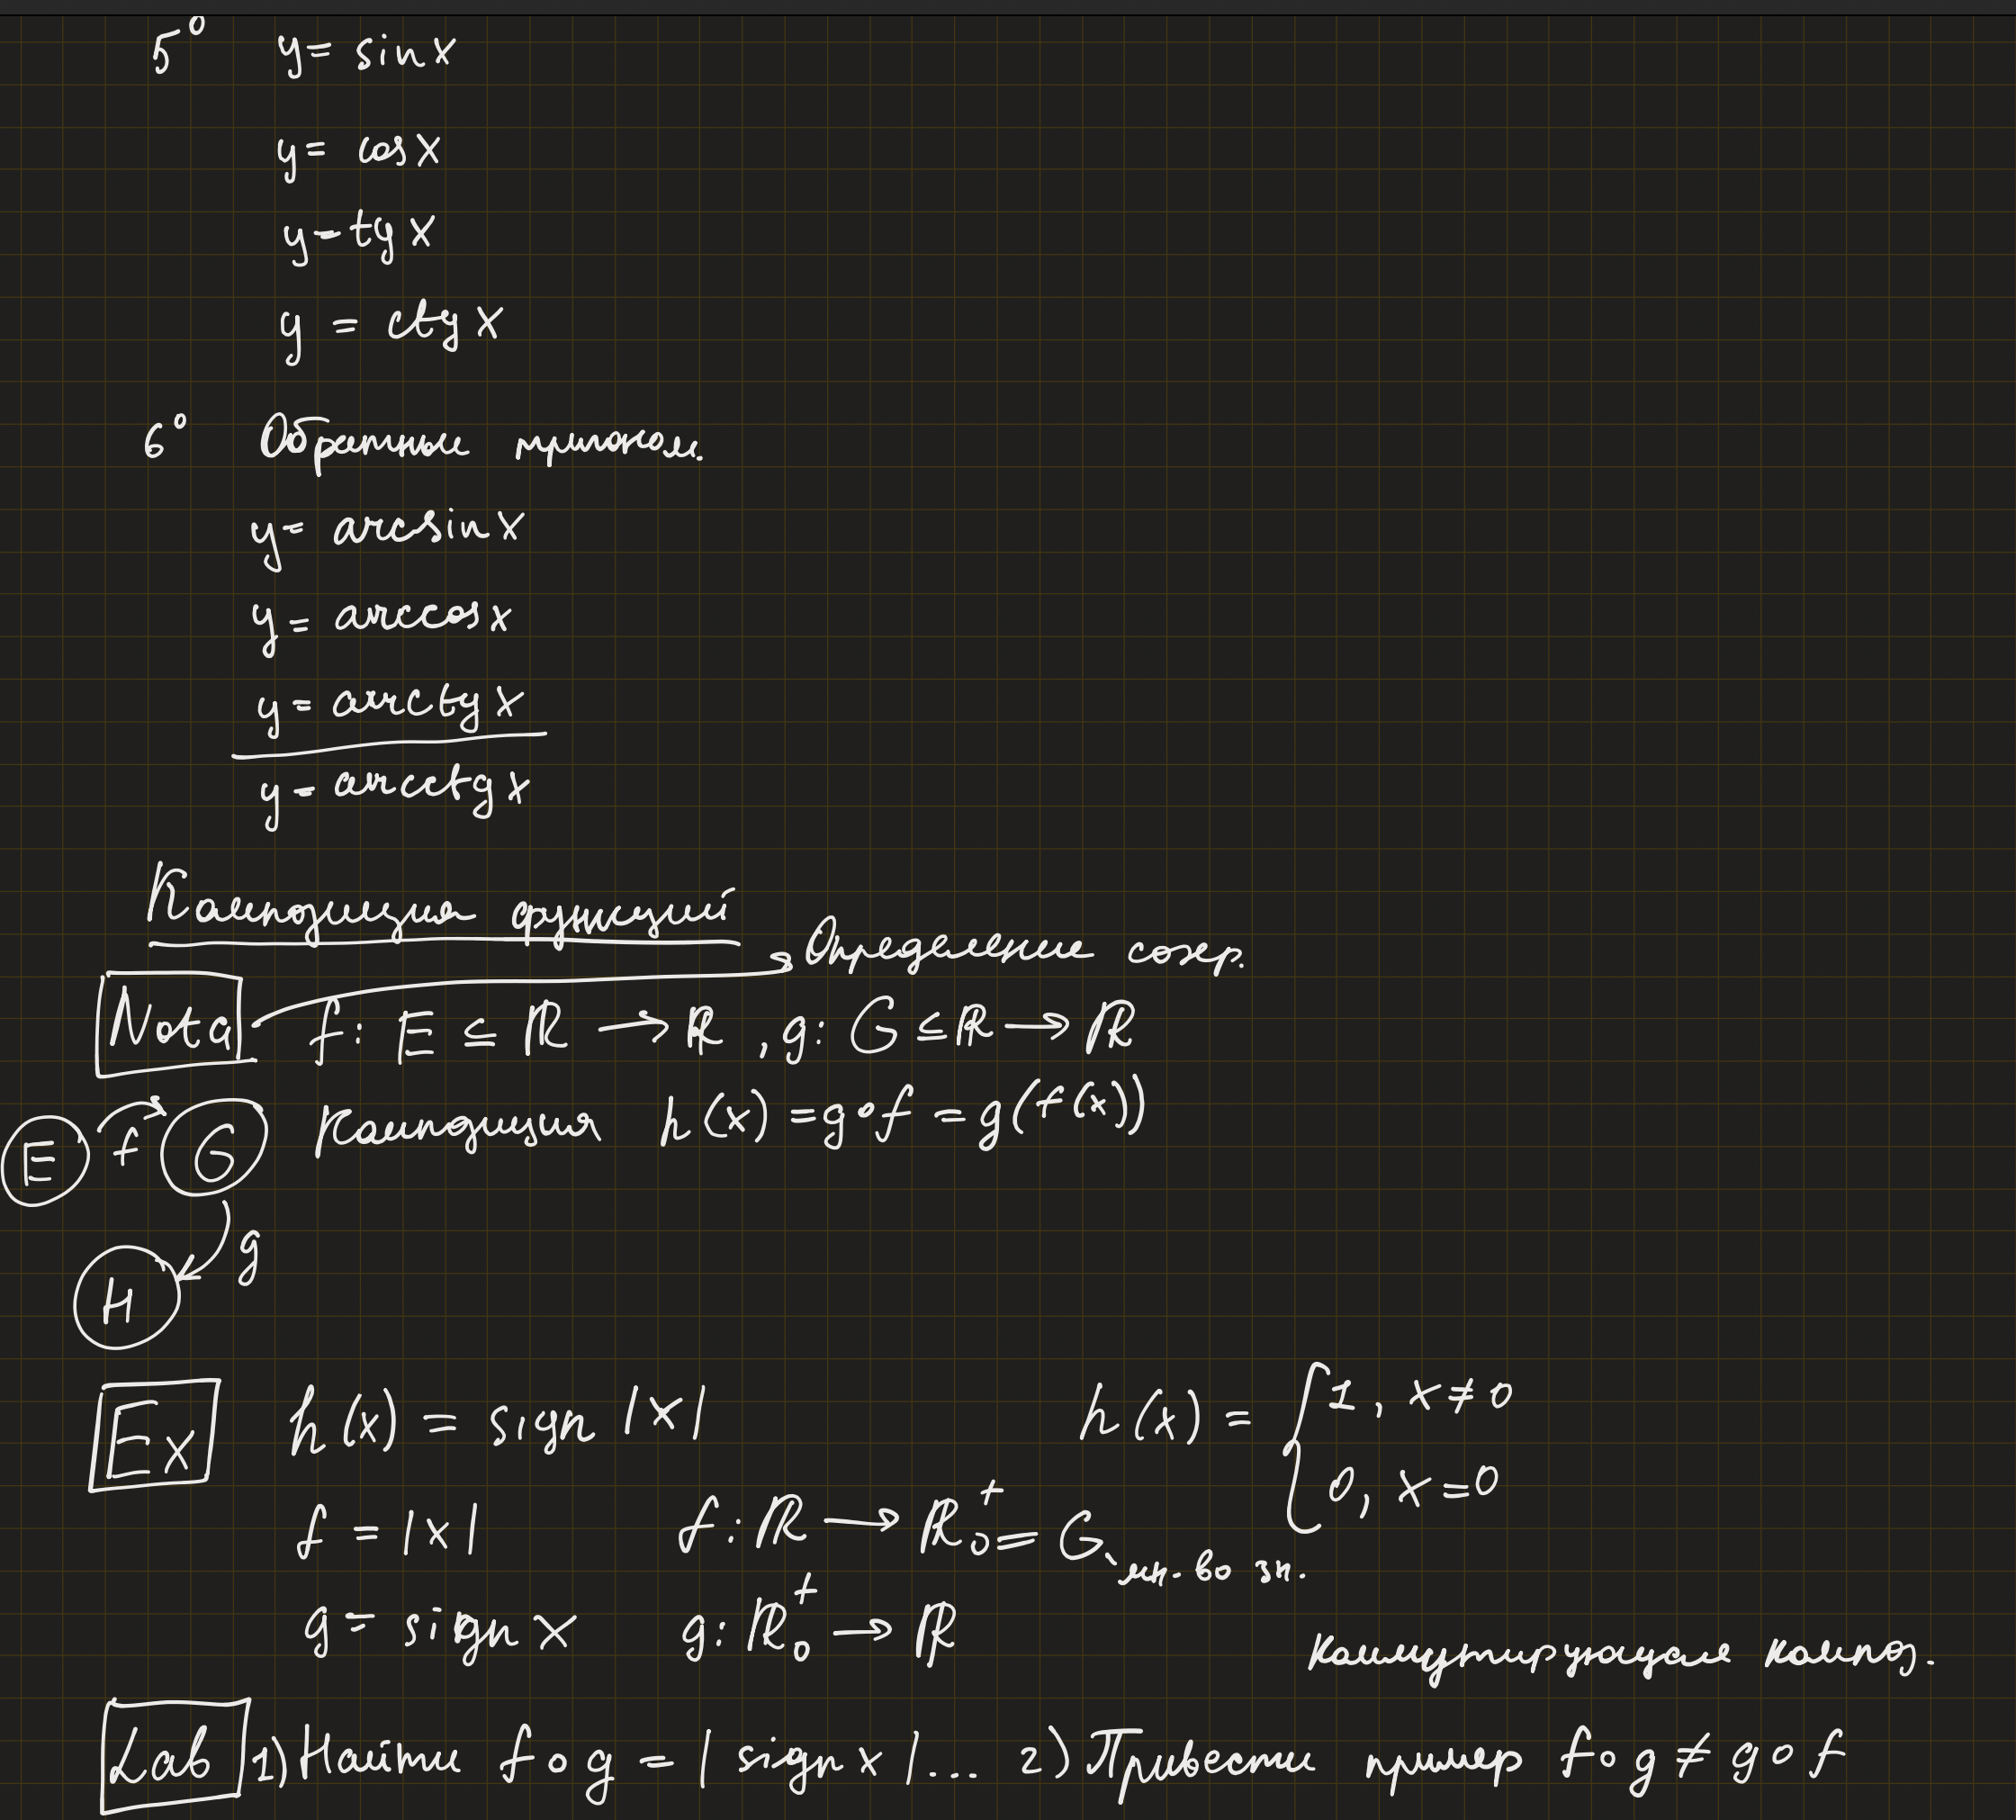 5° y = sin x
y = cos x
y = tg x
y = ctg x
6° Обратные тригоном.
y = arcsin x
y = arccos x
y = arctg x
y = arcctg x
Композиция функций
Определение сохр.
Nota f: E ⊆ ℝ → ℝ, g: G ⊆ ℝ → ℝ
E f G Композиция h(x) = g∘f = g(f(x))
g
H
Ex h(x) = sign |x| h(x) = { 1, x ≠ 0
0, x = 0
f = |x| f: ℝ → ℝ₀⁺ = G мн-во зн.
g = sign x g: ℝ₀⁺ → ℝ
коммутирующая композ.
Lab 1) Найти f∘g = |sign x|... 2) Привести пример f∘g ≠ g∘f